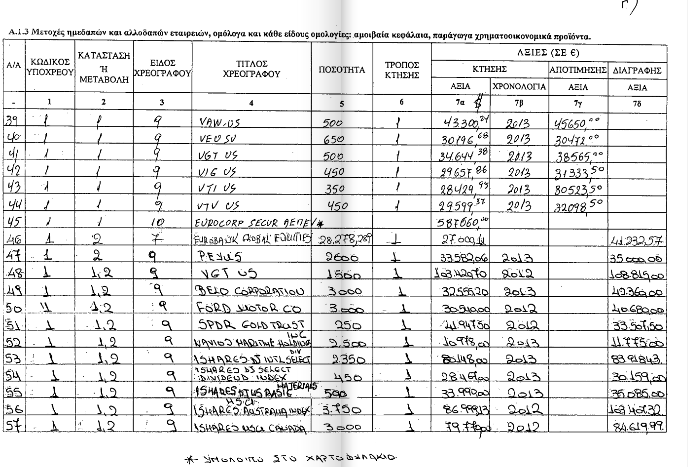 Α.1.3 Μετοχές ημεδαπών και αλλοδαπών εταιρειών, ομόλογα και κάθε είδους ομολογίες: αμοιβαία κεφάλαια, παράγωγα χρηματοοικονομικά προϊόντα.
ΑΞΙΕΣ (ΣΕ €)
Α/Α ΚΩΔΙΚΟΣ ΥΠΟΧΡΕΟΥ ΚΑΤΑΣΤΑΣΗ Ή ΜΕΤΑΒΟΛΗ ΕΙΔΟΣ ΧΡΕΟΓΡΑΦΟΥ ΤΙΤΛΟΣ ΧΡΕΟΓΡΑΦΟΥ ΠΟΣΟΤΗΤΑ ΤΡΟΠΟΣ ΚΤΗΣΗΣ ΚΤΗΣΗΣ ΑΠΟΤΙΜΗΣΗΣ ΔΙΑΓΡΑΦΗΣ
ΑΞΙΑ ΧΡΟΝΟΛΟΓΙΑ ΑΞΙΑ ΑΞΙΑ
- 1 2 3 4 5 6 7α 7β 7γ 7δ
39 1 1 9 VAW US 500 1 2013 45650,00
40 1 1 9 650 1 30196,68 2013 30472,00
41 1 1 9 VGT US 500 1 34644,38 2013 38565,00
42 1 1 9 VIG US 450 1 29657,86 2013 31333,50
43 1 1 9 VTI US 350 1 2013
44 1 1 9 VTV US 450 1 2013 32098,50
45 1 1 10 EUROCORP SECUR ΑΕΠΕΥ*
46 1 2 7 EUROBANK GLOBAL EQUITIES 28.278,289 1 41.232,57
47 1 2 9 2600 1 33.582,06 2013 35.000,06
48 1 1,2 9 VGT US 1500 1 2012 108.815,00
49 1 1,2 9 BELO CORPORATION 3.000 1 2013
50 1 1,2 9 FORD MOTOR CO 3.000 1 2012 40.680,00
51 1 1,2 9 SPDR GOLD TRUST 250 1 2012 33.507,50
52 1 1,2 9 NAVIOS MARITIME HOLDINGS INC 2.500 1 2012 11.775,00
53 1 1,2 9 ISHARES DJ INTL SELECT DIV 2.350 1 2013
54 1 1,2 9 ISHARES DJ SELECT DIVIDEND INDEX 450 1 2013 30.159,00
55 1 1,2 9 ISHARES DJ US BASIC MATERIALS 500 1 2013 35.085,00
56 1 1,2 9 ISHARES MSCI AUSTRALIA INDEX 3.750 1 2012
57 1 1,2 9 ISHARES MSCI CANADA 3.000 1 2012 84.619,99
*- ΥΠΟΛΟΙΠΟ ΣΤΟ ΧΑΡΤΟΦΥΛΑΚΙΟ